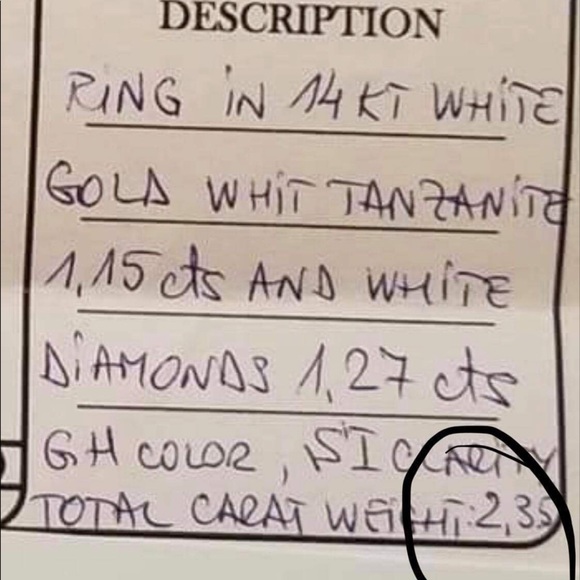 DESCRIPTION
RING IN 14 KT WHITE
GOLD WHIT TANZANITE
1,15 cts AND WHITE
DIAMONDS 1,27 cts
GH COLOR, SI CLARITY
TOTAL CARAT WEIGHT: 2,35